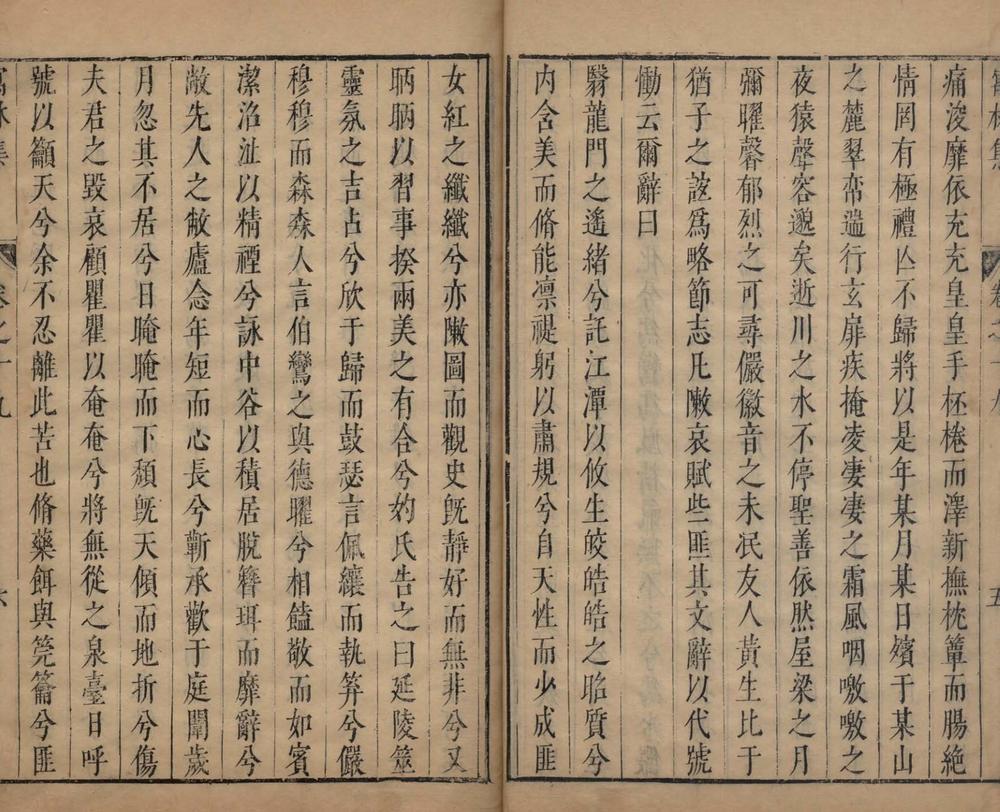 痛浚靡依充充皇皇手杯棬而澤新撫枕簟而腸絕
情罔有極禮亾不歸將以是年某月某日殯于某山
之麓翠巒遄行玄扉疾掩凌凄凄之霜風咽噭噭之
夜猿聲容邈矣逝川之水不停聖善依然屋梁之月
彌曜馨郁烈之可尋儼徽音之未泯友人黃生比于
猶子之誼爲略節志凡陳哀賦些匪其文辭以代號
慟云爾辭曰
翳龍門之遙緒兮託江潭以攸生皎皓皓之昭質兮
内含美而脩能凛禔躬以肅規兮自天性而少成匪
女紅之纖纖兮亦陳圖而觀史旣靜好而無非兮又
昞昞以習事揆兩美之有合兮妁氏告之曰延陵筮
靈氛之吉占兮欣于歸而鼓瑟言佩纕而執筓兮儼
穆穆而森森人言伯鸞之與德曜兮相饁敬而如賓
潔沼沚以精禋兮詠中谷以積居脫簪珥而靡辭兮
敝先人之敝廬念年短而心長兮蘄承歡于庭闈歲
月忽其不居兮日晻晻而下頹旣天傾而地折兮傷
夫君之毀哀顧瞿瞿以奄奄兮將無從之泉臺日呼
號以籲天兮余不忍離此苦也脩藥餌與筦籥兮匪
卷之十九